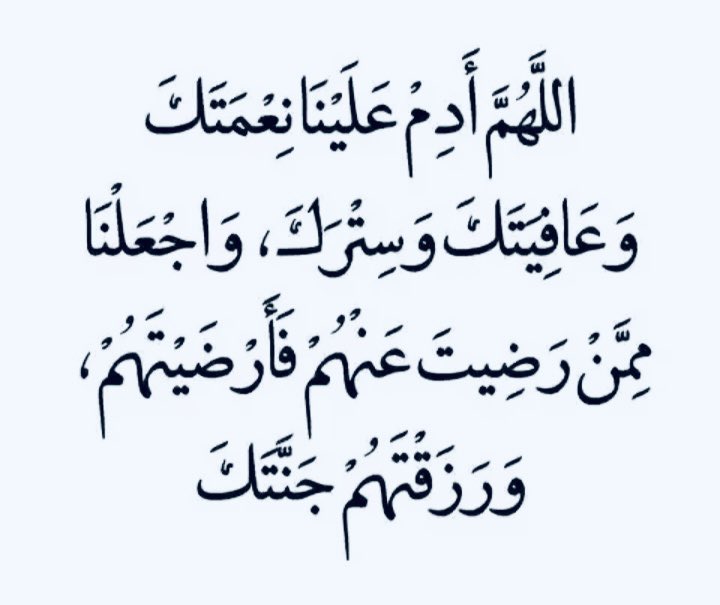 اللَّهُمَّ أَدِمْ عَلَيْنَا نِعْمَتَكَ
وَعَافِيَتَكَ وَسِتْرَكَ، وَاجْعَلْنَا
مِمَّنْ رَضِيتَ عَنْهُمْ فَأَرْضَيْتَهُمْ،
وَرَزَقْتَهُمْ جَنَّتَكَ